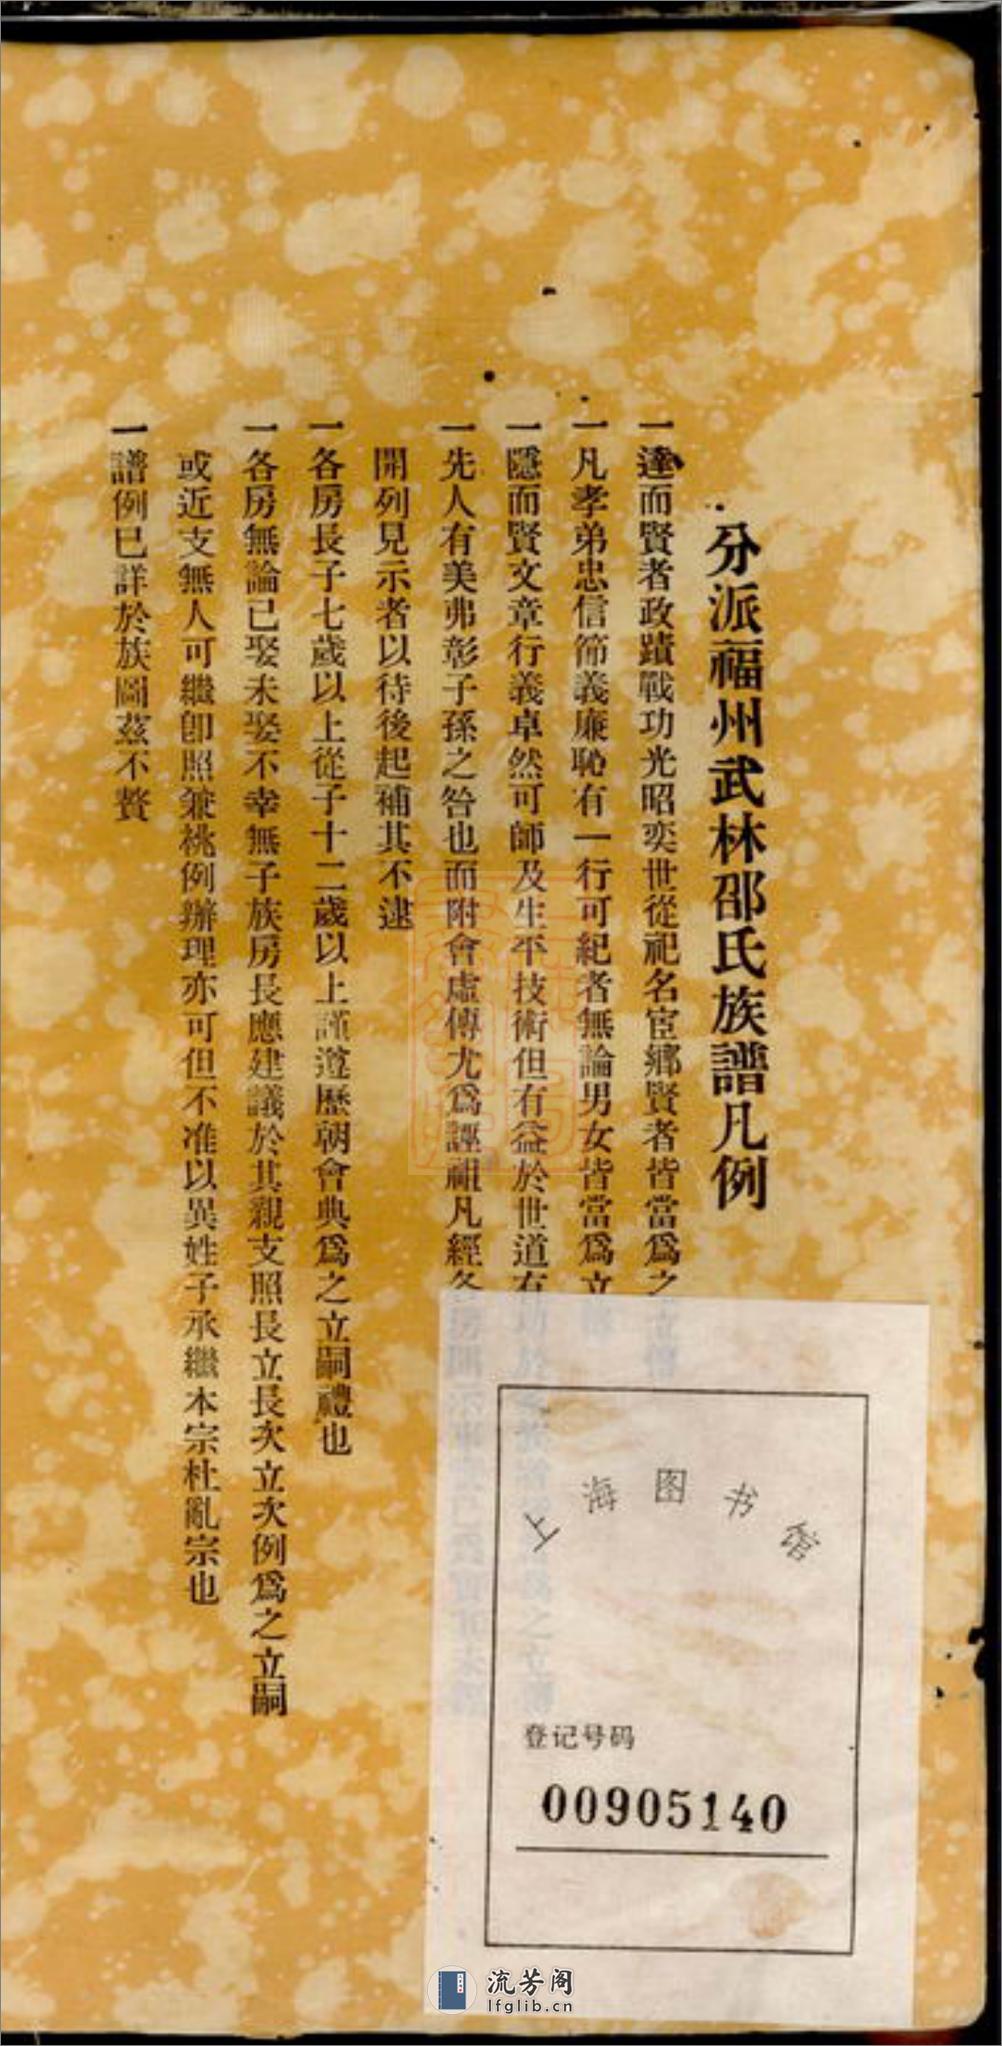 分派福州武林邵氏族譜凡例
一達而賢者政蹟戰功光昭奕世從祀名宦鄉賢者皆當爲之立傳
一凡孝弟忠信節義廉恥有一行可紀者無論男女皆當爲立傳
一隱而賢文章行義卓然可師及生平技術但有益於世道有功於
一先人有美弗彰子孫之咎也而附會虛傳尤爲誣祖凡經各房開示
開列見示者以待後起補其不逮
一各房長子七歲以上從子十二歲以上謹遵歷朝會典爲之立嗣禮也
一各房無論已娶未娶不幸無子族房長應建議於其親支照長立長次立次例爲之立嗣
或近支無人可繼卽照兼祧例辦理亦可但不准以異姓子承繼本宗杜亂宗也
一譜例已詳於族圖茲不贅
上海图书馆
登记号码
00905140
流芳阁
lfglib.cn